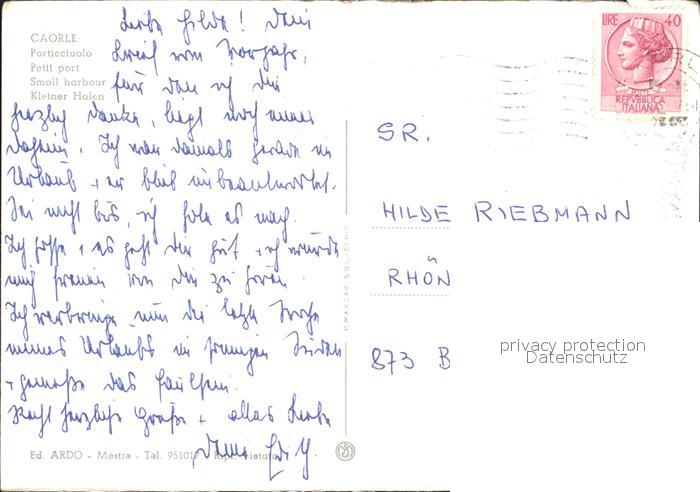 CAORLE
Porticciuolo
Petit port
Small harbour
Kleiner Hafen
Liebe Hilde! Dein
Brief vom Vorjahr,
für den ich dir
herzlich danke, liegt noch immer
daheim. Ich war damals gerade in
Urlaub + er blieb unbeantwortet.
Sei nicht bös, ich hole es nach.
Ich hoffe, es geht dir gut + ich würde
mich freuen von dir zu hören.
Ich verbringe nun die letzte Woche
meines Urlaubs im sonnigen Süden
+ genieße das Faulsein.
Recht herzliche Grüße + alles Liebe
Deine
Ed. ARDO - Mestre - Tel. 951017
LIRE 40
REPVBBLICA
ITALIANA
SR.
HILDE RIEBMANN
RHÖN
873 B
privacy protection
Datenschutz